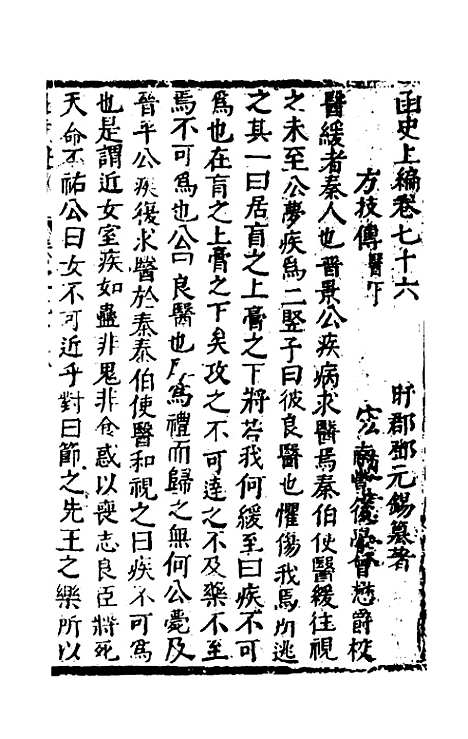 函史上編卷七十六
盱郡鄧元錫纂著
方技傳醫卜
後學曾懋爵校
醫緩者秦人也晉景公疾病求醫焉秦伯使醫緩往視
之未至公夢疾為二竪子曰彼良醫也懼傷我焉所逃
之其一曰居肓之上膏之下將若我何緩至曰疾不可
為也在肓之上膏之下矣攻之不可達之不及藥不至
焉不可為也公曰良醫也厚為禮而歸之無何公薨及
晉平公疾復求醫於秦秦伯使醫和視之曰疾不可為
也是謂近女室疾如蠱非鬼非食惑以喪志良臣將死
天命不祐公曰女不可近乎對曰節之先王之樂所以